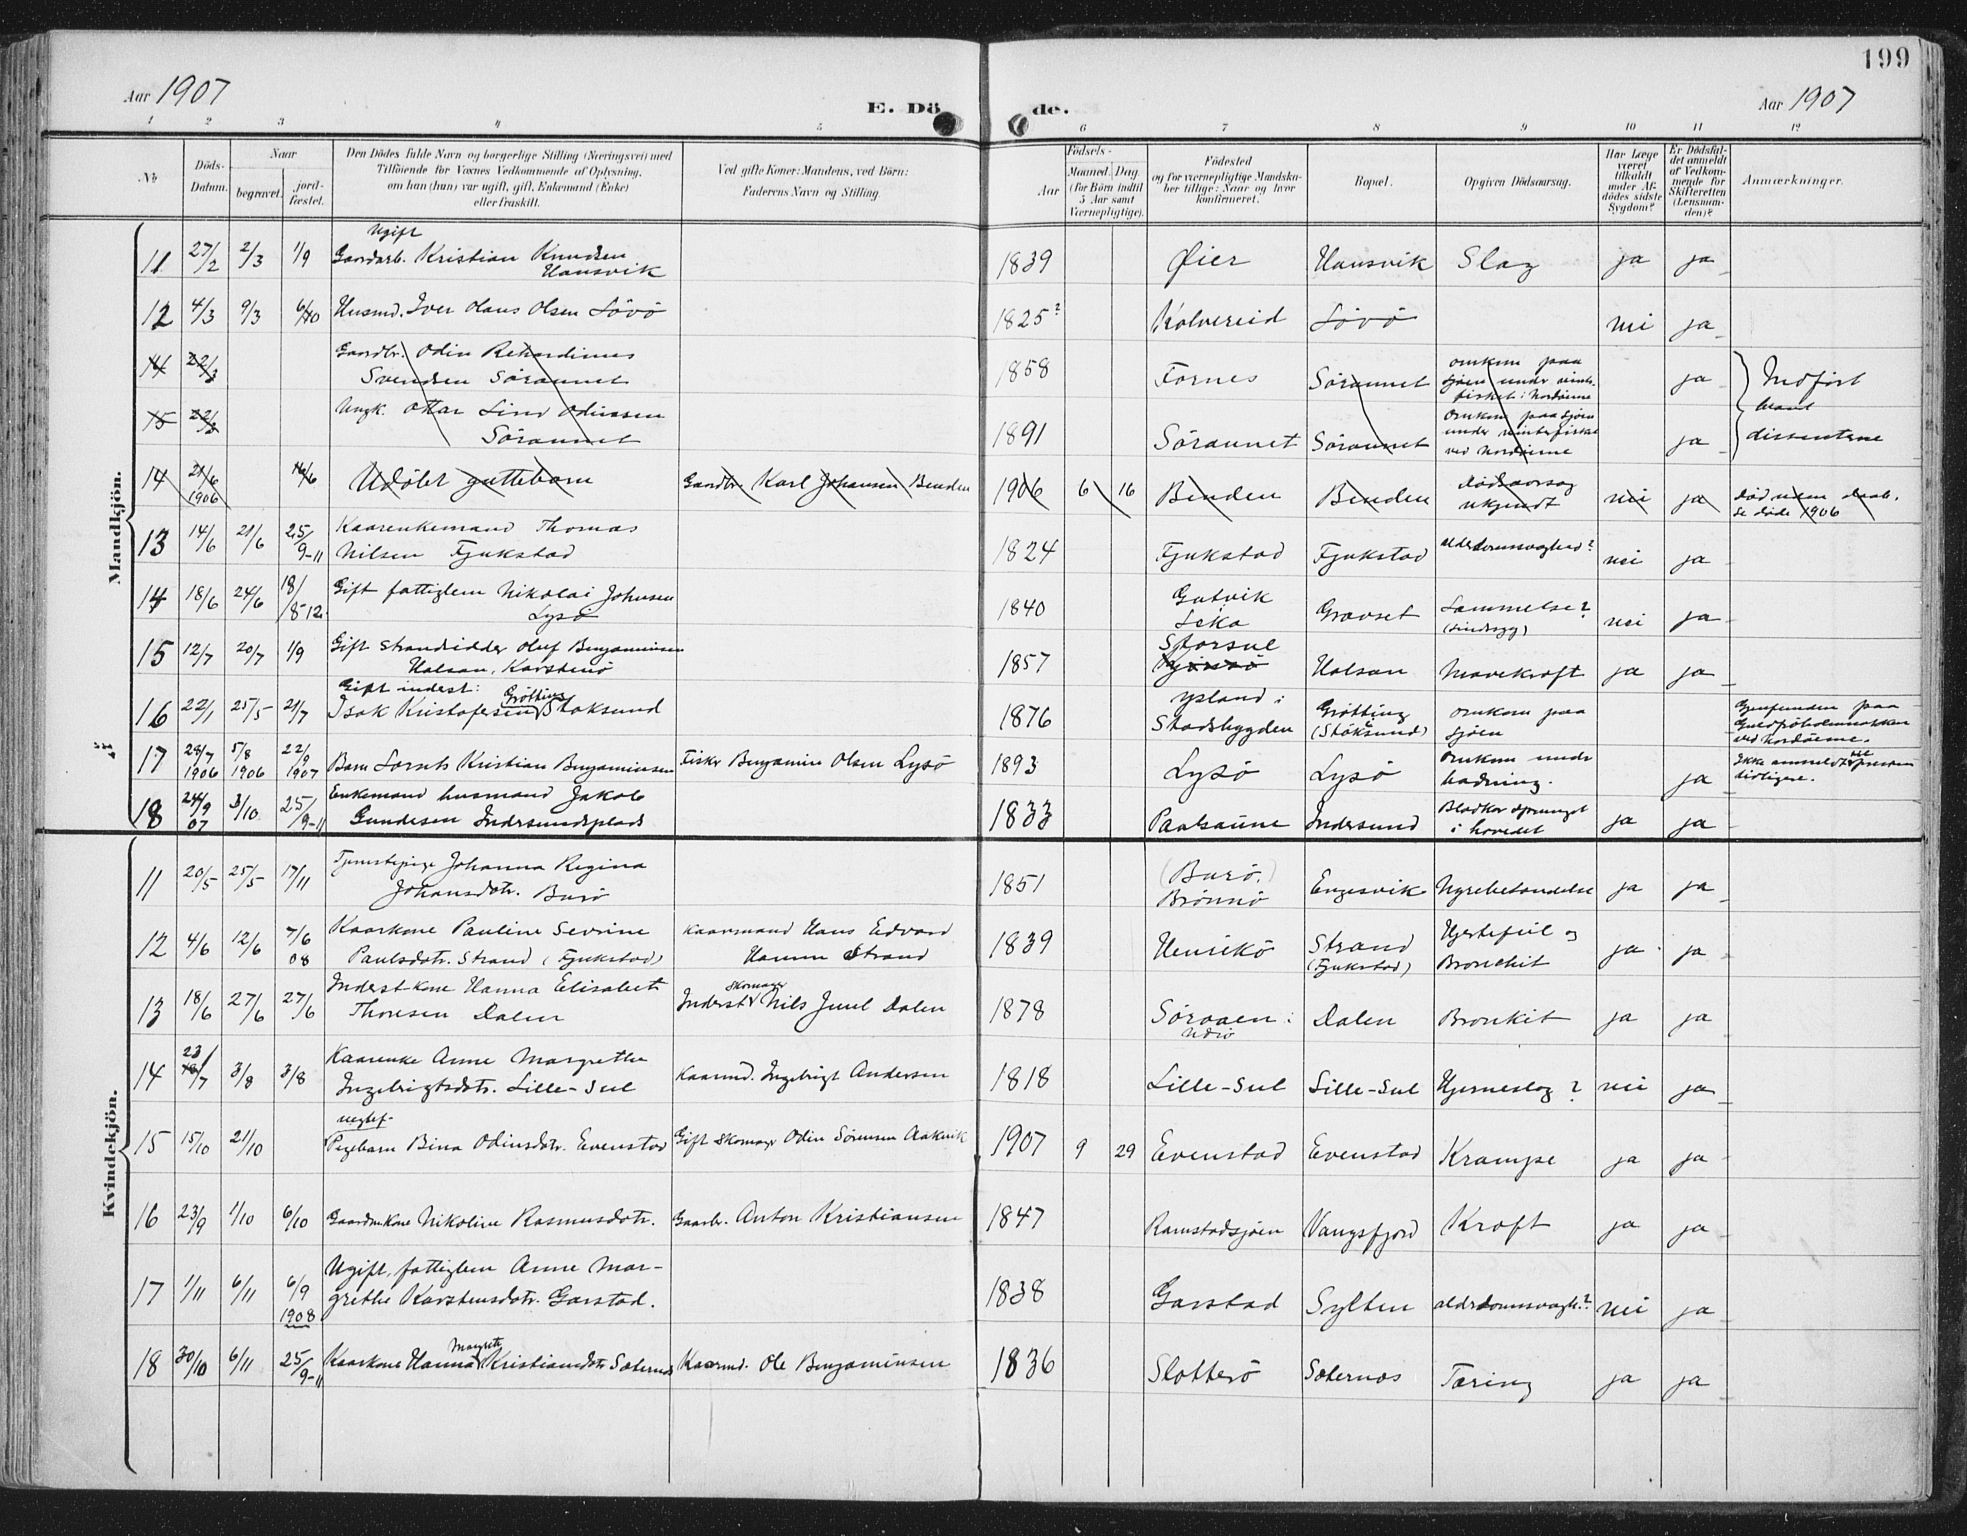 199
Aar 1907
E. Dö
de.
Aar 1907
1 2 3 4 5 6 7 8 9 10 11 12
No.
Döds-
Datum.
Naar
begravet.
jord-
fæstet.
Den Dödes fulde Navn og borgerlige Stilling (Næringsvei) med
Tilföiende for Voxnes Vedkommende af Oplysning,
om han (hun) var ugift, gift, Enkemand (Enke)
eller fraskilt.
Ved gifte Koner: Mandens, ved Börn:
Faderens Navn og Stilling.
Födsels-
Aar
Maaned. Dag.
(for Börn indtil
5 Aar samt
Værnepligtige).
Födested
og for værnepligtige Mandska-
ber tillige: Naar og hvor
konfirmeret.
Bopæl.
Opgiven Dödsaarsag.
Har Læge
været
tilkaldt
under Af-
dödes sidste
Sygdom?
Er Dödsfal-
det anmeldt
af Vedkom-
mende for
Skifteretten
(Lensman-
den)?
Anmærkninger.
Mandkjön.
Ugift
11 27/2 2/3 1/9 Gaardarb. Kristian Knudsen
Hansvik
1839 Øier Hansvik Slag ja ja
12 4/3 9/3 6/10 Husmd. Iver Olaus Olsen Lövö
1825? Kolvereid Lövö nei ja
14 22/3 Gaardbr. Odin
Svendsen Söraunet
1858 Fornes Söraunet omkom paa
sjöen under vinter-
fisket i Nordöerne
ja
Indfört
blant
dissenterne
15 22/3 Ungk. Ottar Lind Odinssen
Söraunet
1891 Söraunet Söraunet Omkom paa sjöen
under vinterfisket
ved Nordöerne
ja
14 21/6 1906 Udöbt guttebarn Gaardbr. Karl Johansen Benden
1906 6 16 Benden Benden Dödsaarsag
ukjendt
nei ja död uden daab.
se döde 1906
13 14/6 21/6 25/9-11 Kaarenkemand Thomas
Nilsen Fjukstad
1824 Fjukstad Fjukstad alderdomsvaghed? nei ja
14 18/6 24/6 18/8-12 Gift fattiglem Nikolai Johnsen
Lysö
1840 Gutvik
Leka
Gravset Lammelse?
(sindssyg)
nei ja
15 12/7 20/7 1/9 Gift strandsidder Oluf Benjaminsen
Halsan, Karstenö
1857 Storsul
Halsan Mavekræft ja ja
Gift inderst:
16 22/1 25/5 21/7 Isak Kristofersen Grötting Stoksund
1876 ysland i
Stadsbygden
Grötting
(Stöksund)
omkom paa
sjöen
Gjenfunden paa
ved Nordöerne.
17 28/7 1906 5/8 1906 22/9 1907 Barn Lorents Kristian Benjaminsen Fisker Benjamin Olsen Lysö
1893 Lysö Lysö Omkom under
badning.
ja Ikke anmeldt til presten
tidligere.
18 24/9 07 3/10 25/9-11 Enkemand husmand Jakob
Gundesen Indersundsplads
1833 Paalsaune Indersund Blodkar sprunget
i hovedet
ja ja
Kvindekjön.
11 20/5 25/5 17/11 Tjenestepige Johanna Regina
Johansdotr. Burö
1851 (Burö.)
Brönnö
Engesvik Nyrebetændelse ja ja
12 4/6 12/6 7/6 08 Kaarkone Pauline Sevrine
Paulsdotr. Strand (Fjukstad)
Kaarmand Hans Edvard
Hansen Strand
1839 Henrikö Strand
(Fjukstad)
Hjertefeil og
Bronchit
ja ja
13 18/6 27/6 27/6 Inderst kone Hanna Elisabeth
Thoresen Dalen
Skomager
Inderst Nils Juul Dalen
1878 Söraaen i
Nærö
Dalen Bronkit ja ja
14 23/7 3/8 3/8 Kaarenke Anne Margrethe
Ingebrigtsdotr. Lille-Sul
Kaarmd. Ingebrigt Andersen
1818 Lille-Sul Lille-Sul Hjerneslag? nei ja
uegtef.
15 15/10 21/10 Pigebarn Bina Odinsdotr. Evenstad Gift Skomager Odin Sörensen Aakvik
1907 9 29 Evenstad Evenstad Krampe ja ja
16 23/9 1/10 6/10 Gaardmkone Nikoline Rasmusdotr. Gaarbr. Anton Kristiansen
1847 Ramstadsjöen Vangsfjord Kræft ja ja
17 1/11 6/11 6/9 1908 Ugift, fattiglem Anne Mar-
grethe Karstensdotr. Garstad.
1838 Garstad Sylten alderdomsvagh.? nei ja
18 30/10 6/11 25/9-11 Kaarkone Hanna Margrete Kristiansdotr. Saternes Kaarmd. Ole Benjaminsen
1836 Slotterö Saternes Tæring ja ja